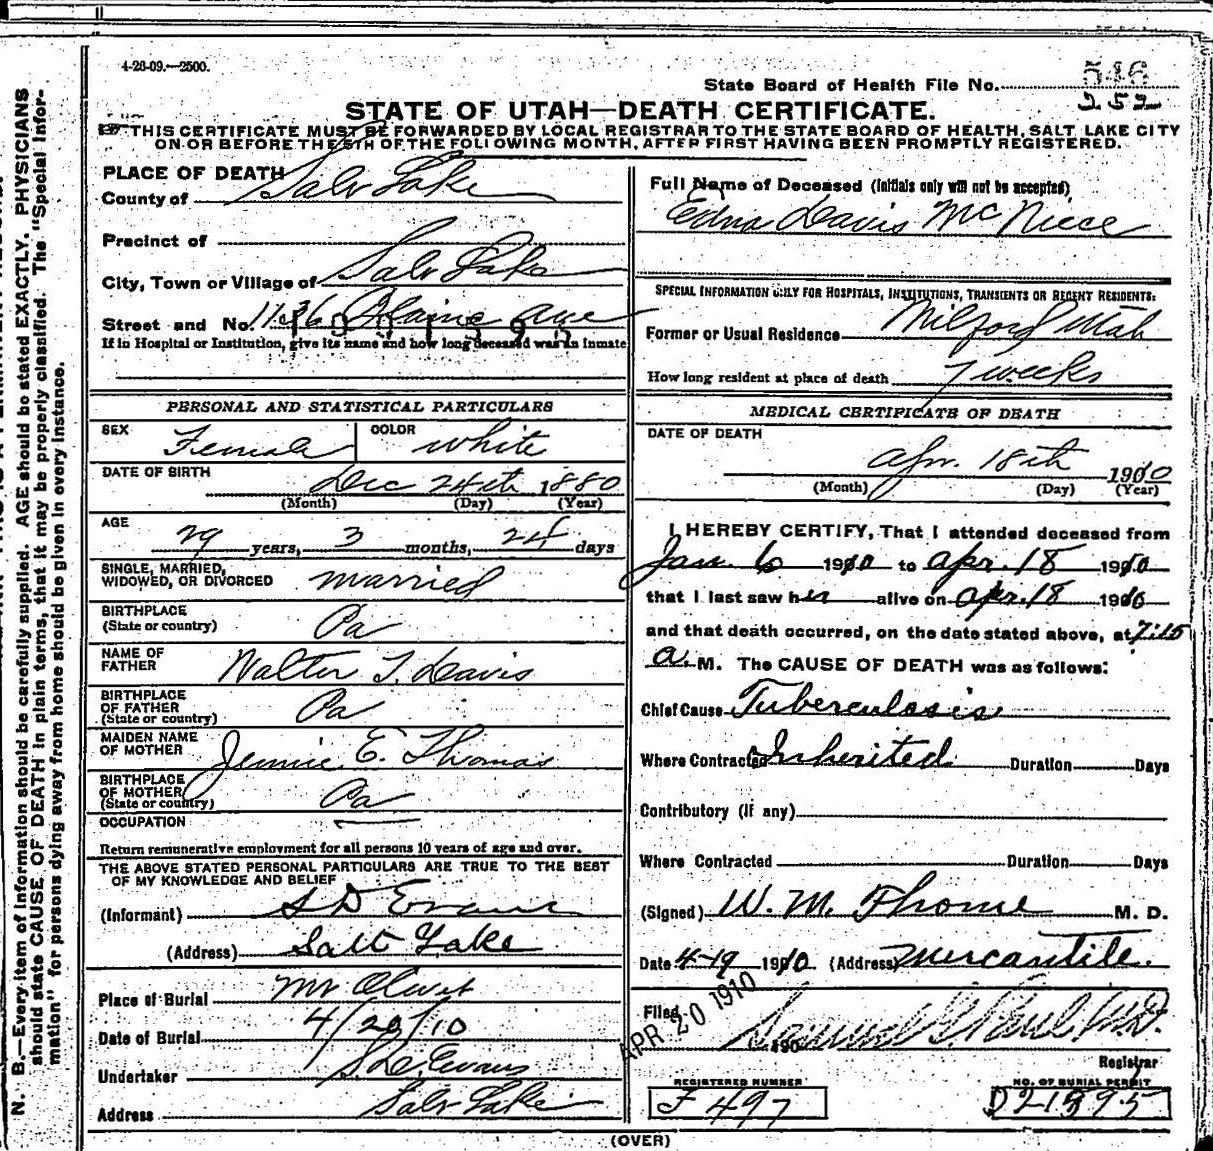 4-26-09.—2500.
State Board of Health File No. 546
252
STATE OF UTAH—DEATH CERTIFICATE.
THIS CERTIFICATE MUST BE FORWARDED BY LOCAL REGISTRAR TO THE STATE BOARD OF HEALTH, SALT LAKE CITY
ON OR BEFORE THE 5TH OF THE FOLLOWING MONTH, AFTER FIRST HAVING BEEN PROMPTLY REGISTERED.
PLACE OF DEATH
County of Salt Lake
Precinct of
City, Town or Village of Salt Lake
Street and No. 1136 Blaine Ave
If in Hospital or Institution, give its name and how long deceased was an inmate
PERSONAL AND STATISTICAL PARTICULARS
SEX Female COLOR white
DATE OF BIRTH Dec 24th 1880
(Month) (Day) (Year)
AGE 29 years, 3 months, 24 days
SINGLE, MARRIED,
WIDOWED, OR DIVORCED married
BIRTHPLACE
(State or country) Pa
NAME OF
FATHER Walter T. Davis
BIRTHPLACE
OF FATHER
(State or country) Pa
MAIDEN NAME
OF MOTHER Jennie E. Thomas
BIRTHPLACE
OF MOTHER
(State or country) Pa
OCCUPATION —
Return remunerative employment for all persons 10 years of age and over.
THE ABOVE STATED PERSONAL PARTICULARS ARE TRUE TO THE BEST
OF MY KNOWLEDGE AND BELIEF
(Informant) S D Evans
(Address) Salt Lake
Place of Burial Mt Olivet
Date of Burial 4/20/10
Undertaker S. D. Evans
Address Salt Lake
Full Name of Deceased (Initials only will not be accepted)
Edna Davis McNiece
SPECIAL INFORMATION ONLY FOR HOSPITALS, INSTITUTIONS, TRANSIENTS OR RECENT RESIDENTS:
Former or Usual Residence Milford Utah
How long resident at place of death 7 weeks
MEDICAL CERTIFICATE OF DEATH
DATE OF DEATH
Apr. 18th 1910
(Month) (Day) (Year)
I HEREBY CERTIFY, That I attended deceased from
Jan. 6 1910 to Apr. 18 1910
that I last saw her alive on Apr. 18 1910
and that death occurred, on the date stated above, at 7:15
a. M. The CAUSE OF DEATH was as follows:
Chief Cause Tuberculosis
Where Contracted Inherited Duration Days
Contributory (If any)
Where Contracted Duration Days
(Signed) W. M. Thome M. D.
Date 4-19 1910 (Address) Mercantile
Filed APR 20 1910 190 Samuel G. Paul M.D.
Registrar
REGISTERED NUMBER
F 497
NO. OF BURIAL PERMIT
D21395
(OVER)
N. B.—Every item of information should be carefully supplied. AGE should be stated EXACTLY. PHYSICIANS
should state CAUSE OF DEATH in plain terms, that it may be properly classified. The "Special Infor-
mation" for persons dying away from home should be given in every instance.